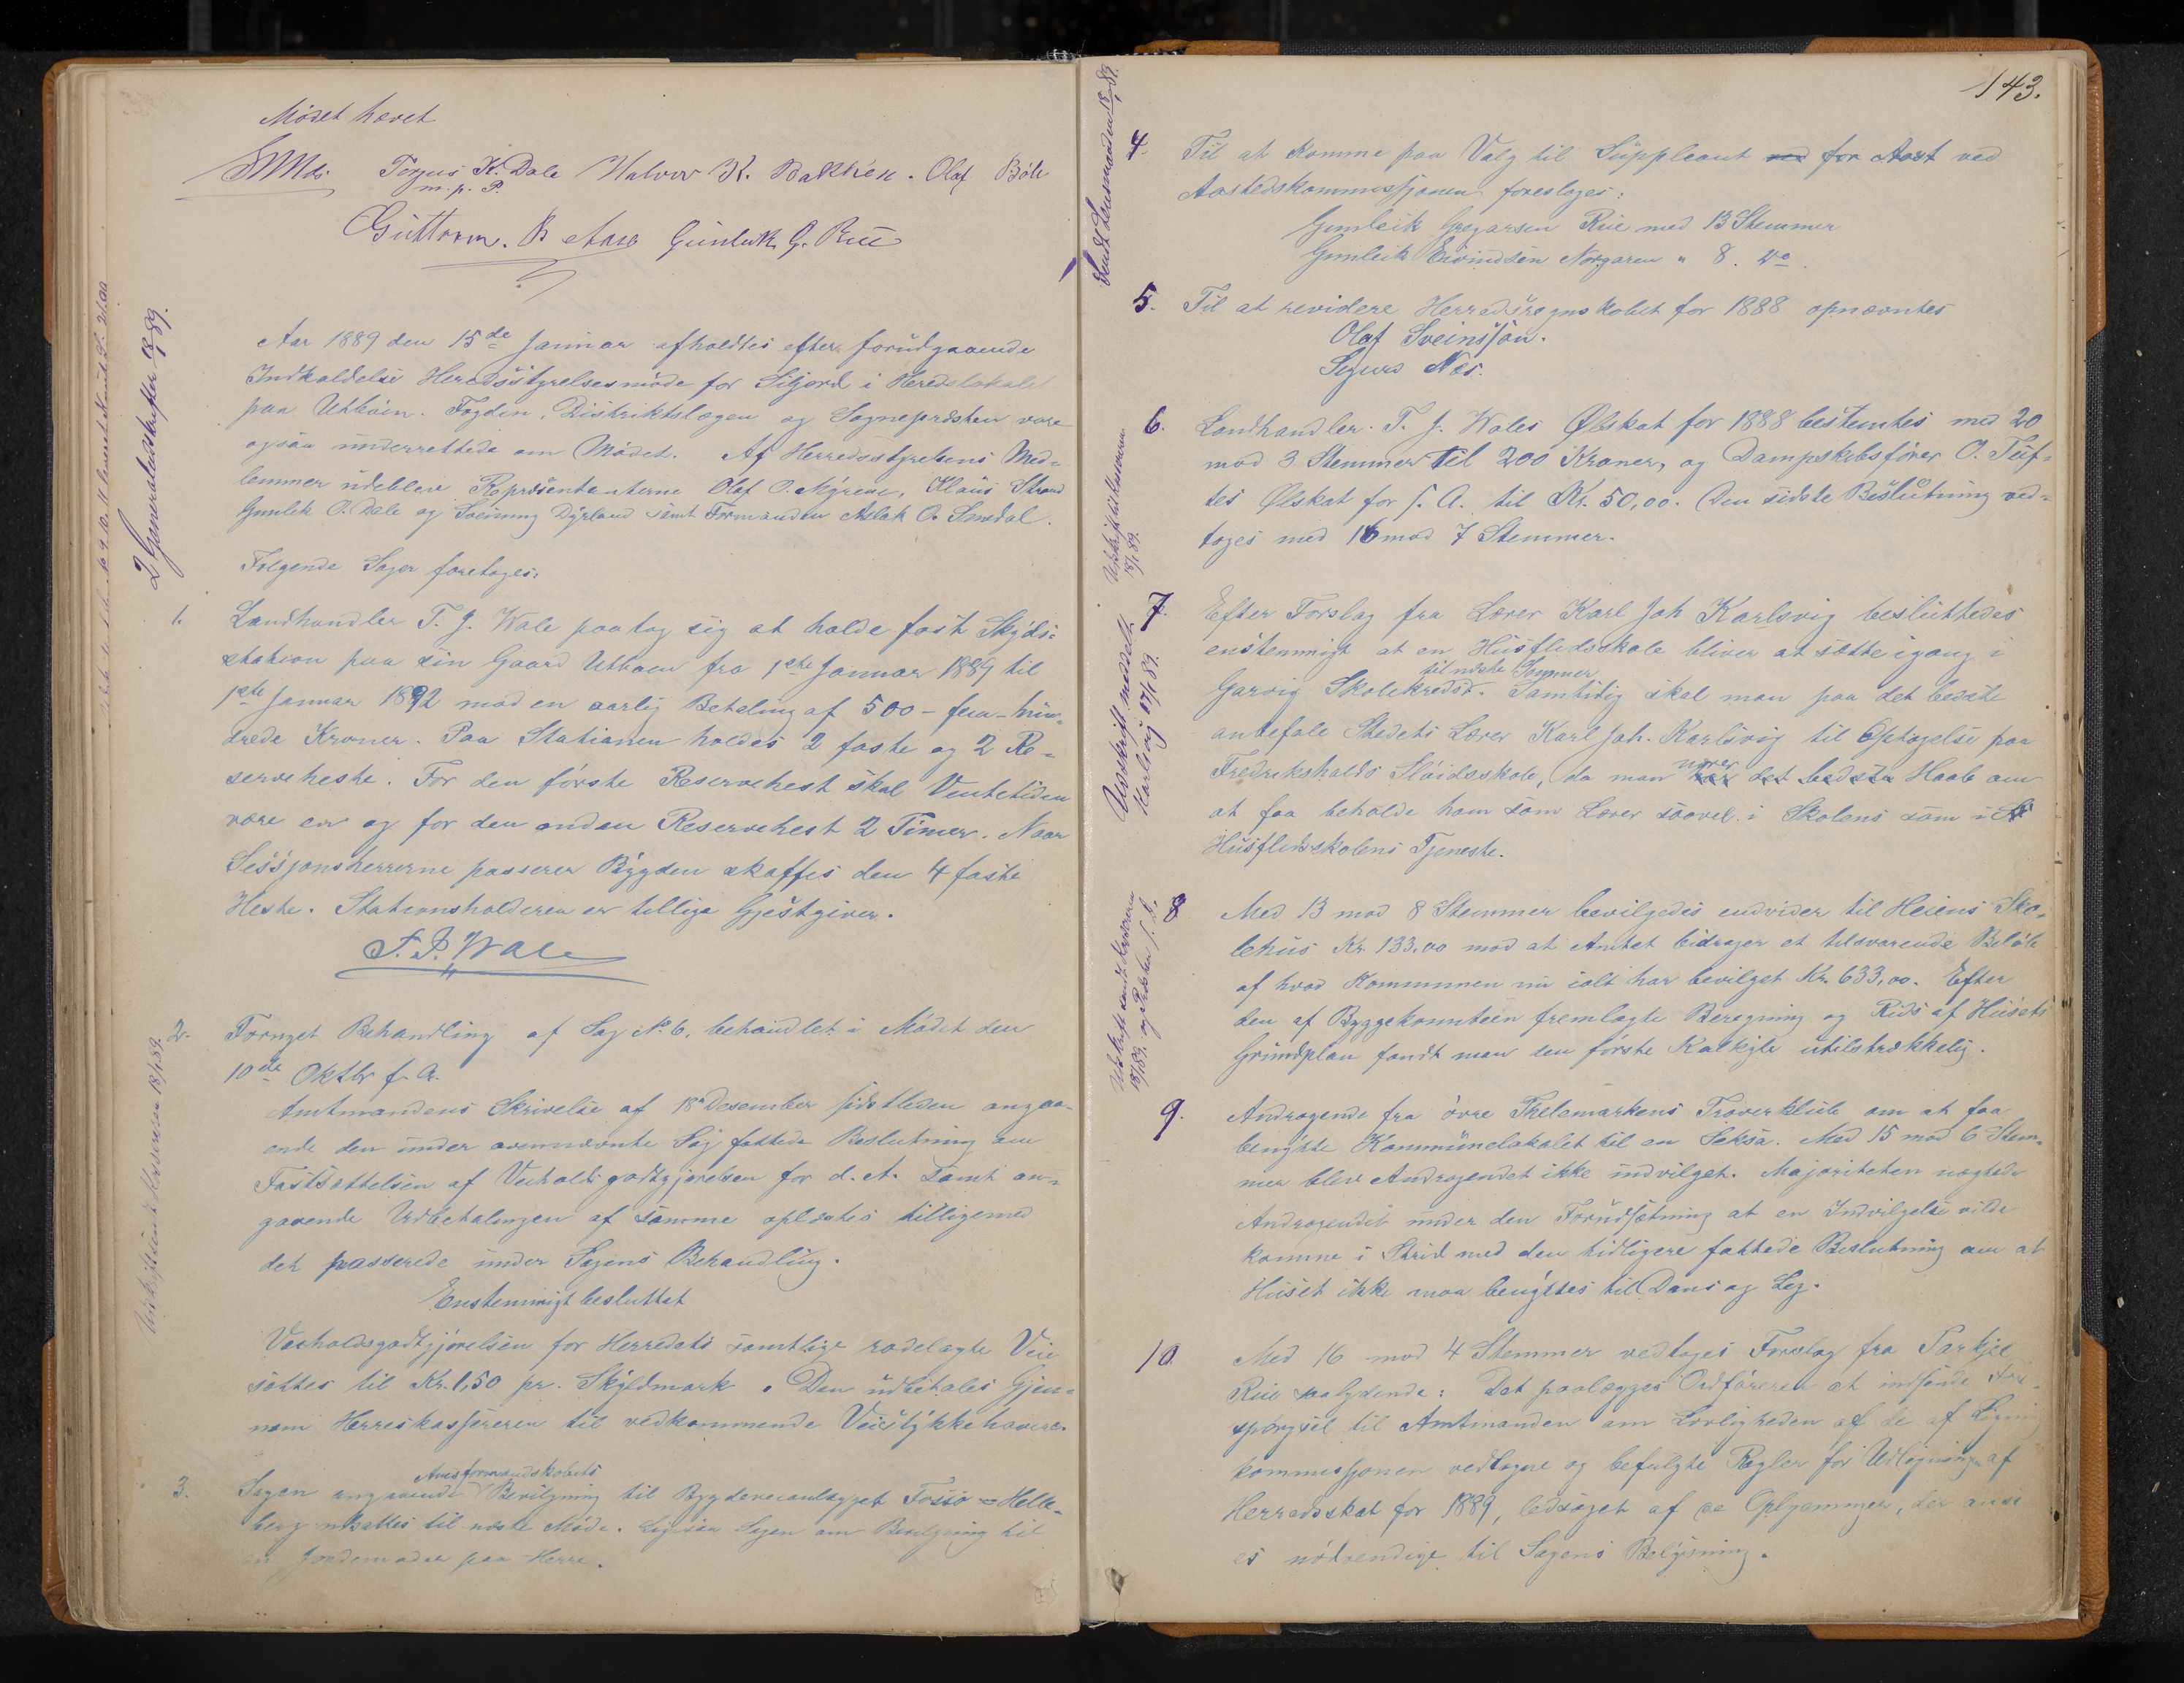 Mødet hævet
Torjus K. Dale Halvor K. Bakken. Olaf Bøle
m. p. P.
Guttorm. B Aase Gunleik G. Rue
Aar 1889 den 15de Januar afholdtes efter forudgaaende
Indkaldelse Heredsstyrelsesmøde for Siljord i Heredslokalet
paa Utbøen. Fogden, Distriktslægen og Sognepræsten vare
ogsaa underrettede om Mødet. Af Herredsstyrelsens Med=
lemmer udeblev Repræsentanterne Olaf O. Myrene, Klaus Strand
Gunlek O. Dale og Sveinung Dyrland samt Formanden Aslak O. Smedal.
Følgende Sager foretoges:
1. Landhandler T. J. Wale paatog sig at holde fast Skyds=
station paa sin Gaard Utbøen fra 1ste Januar 1889 til
1ste Januar 1892 mod en aarlig Betaling af 500 - fem-hun=
drede Kroner. Paa Stationen holdes 2 faste og 2 Re=
serveheste. For den første Reservehest skal Ventetiden
være en og for den anden Reservehest 2 Timer. Naar
Sessjonsherrerne passerer Bygden skaffes den 4 faste
Heste. Stationsholderen er tillige Gjestgiver.
T. J. Wale
2. Fornyet Behandling af Sag No 6, behandlet i Mødet den
10de Oktbr f. A.
Amtmandens Skrivelse af 18 Desember sidstleden angaa-
ende den under ovennævnte Sag fattede Beslutning om
Fastsættelsen af Veiholdsgodtgjørelsen for d. A. samt an=
gaaende Udbetalingen af samme oplæstes tilligemed
det passerede under Sagens Behandling.
Enstemmigt besluttet
Veiholdsgodtgjørelsen for Herredets samtlige rodelagte Veie
sættes til Kr. 1,50 pr. Skyldmark. Den udbetales Gjen=
nem Herreskassereren til vedkommende Veistykkehavere.
Amtsformandskabets
3. Sagen angaaende Bevilgning til Bygdeveianlægget Fossø = Helle=
berg udsattes til næste Møde. Ligesaa Sagen om Bevilgning til
en Jordemoder paa Herre.
2 Generaludskrifter 18/1 89.
Udskrift sendt Kassereren 18/1 89.
143.
Sendt Lensmanden 18/1 89.
4. Til at komme paa Valg til Suppleant ved for Aast ved
Aastedskommissjonen foresloges:
Gunleik Gregarsen Rue med 13 Stemmer
Gunleik Eivindsen Norgaren " 8. do
5. Til at revidere Herredsregnskabet for 1888 opnævntes
Olaf Sveinsson.
Sigurd Næs.
6. Landhandler T. J. Wales Ølskat for 1888 bestemtes med 20
mod 3 Stemmer til 200 Kroner, og Dampskibsfører O. Tuf=
tes Ølskat for s. A. til Kr. 50,00. Den sidste Beslutning ved=
toges med 16 mod 7 Stemmer.
18/1 89.
7. Efter Forslag fra Lærer Karl Joh Karlsvig besluttedes
enstemmigt at en Husflidsskole bliver at sætte igang i
til næste Sommer
Garvig Skolekreds. Samtidig skal man paa det bedste
anbefale Stedets Lærer Karl Joh. Karlsvig til Optagelse paa
nærer
Fredrikshalds Sløidskole, da man har det bedste Haab om
at faa beholde ham som Lærer saavel i Skolens som i
Husflidsskolens Tjeneste.
Udskrift meddelt
Karlsvig 17/1 89.
8 Med 13 mod 8 Stemmer bevilgedes endvider til Heiens Sko=
lehus Kr. 133,00 mod at Amtet bidrager et tilsvarende Beløb
af hvad Kommunen nu ialt har bevilget Kr. 633,00. Efter
den af Byggekomiteen fremlagte Beregning og Rids af Husets
Grundplan fandt man den første Kalkyle utilstrækkelig.
Udskrift sendt Kassereren
18/1 89. og Præsten s. D.
9. Andragende fra øvre Thelemarkens Traverklub om at faa
benytte Kommunelokalet til en Seksa. Med 15 mod 6 Stem=
mer blev Andragendet ikke indvilget. Majoriteten nægtede
Andragendet under den Forudsætning at en Indvilgelse vilde
komme i Strid med den tidligere fattede Beslutning om at
Huset ikke maa benyttes til Dans og Leg.
10. Med 16 mod 4 Stemmer vedtoges Forslag fra Tarkjel
Rue saalydende: Det paalægges Ordføreren at indsende Fore-
spørgsel til Amtmanden om Lovligheden af de af Lignings
kommissjonen vedtagne og befulgte Regler for Udligningen af
Herredsskat for 1889, ledsaget af de Oplysninger, der anse
es nødvendige til Sagens Belysning.